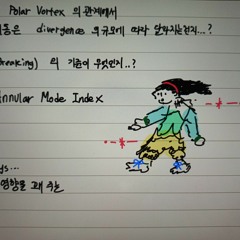 Polar Vortex 의 관계에서
동은 divergence의 규모에 따라 달라지는건지...?
breaking) 의 기준이 무엇인지..?
Annular Mode Index
ys...
영향을 꽤 주는